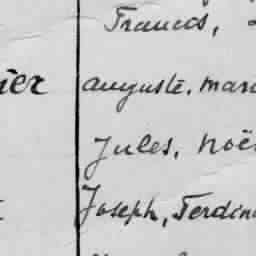 Francis,
ier auguste. mari
Jules, Noë
Joseph, Ferdin